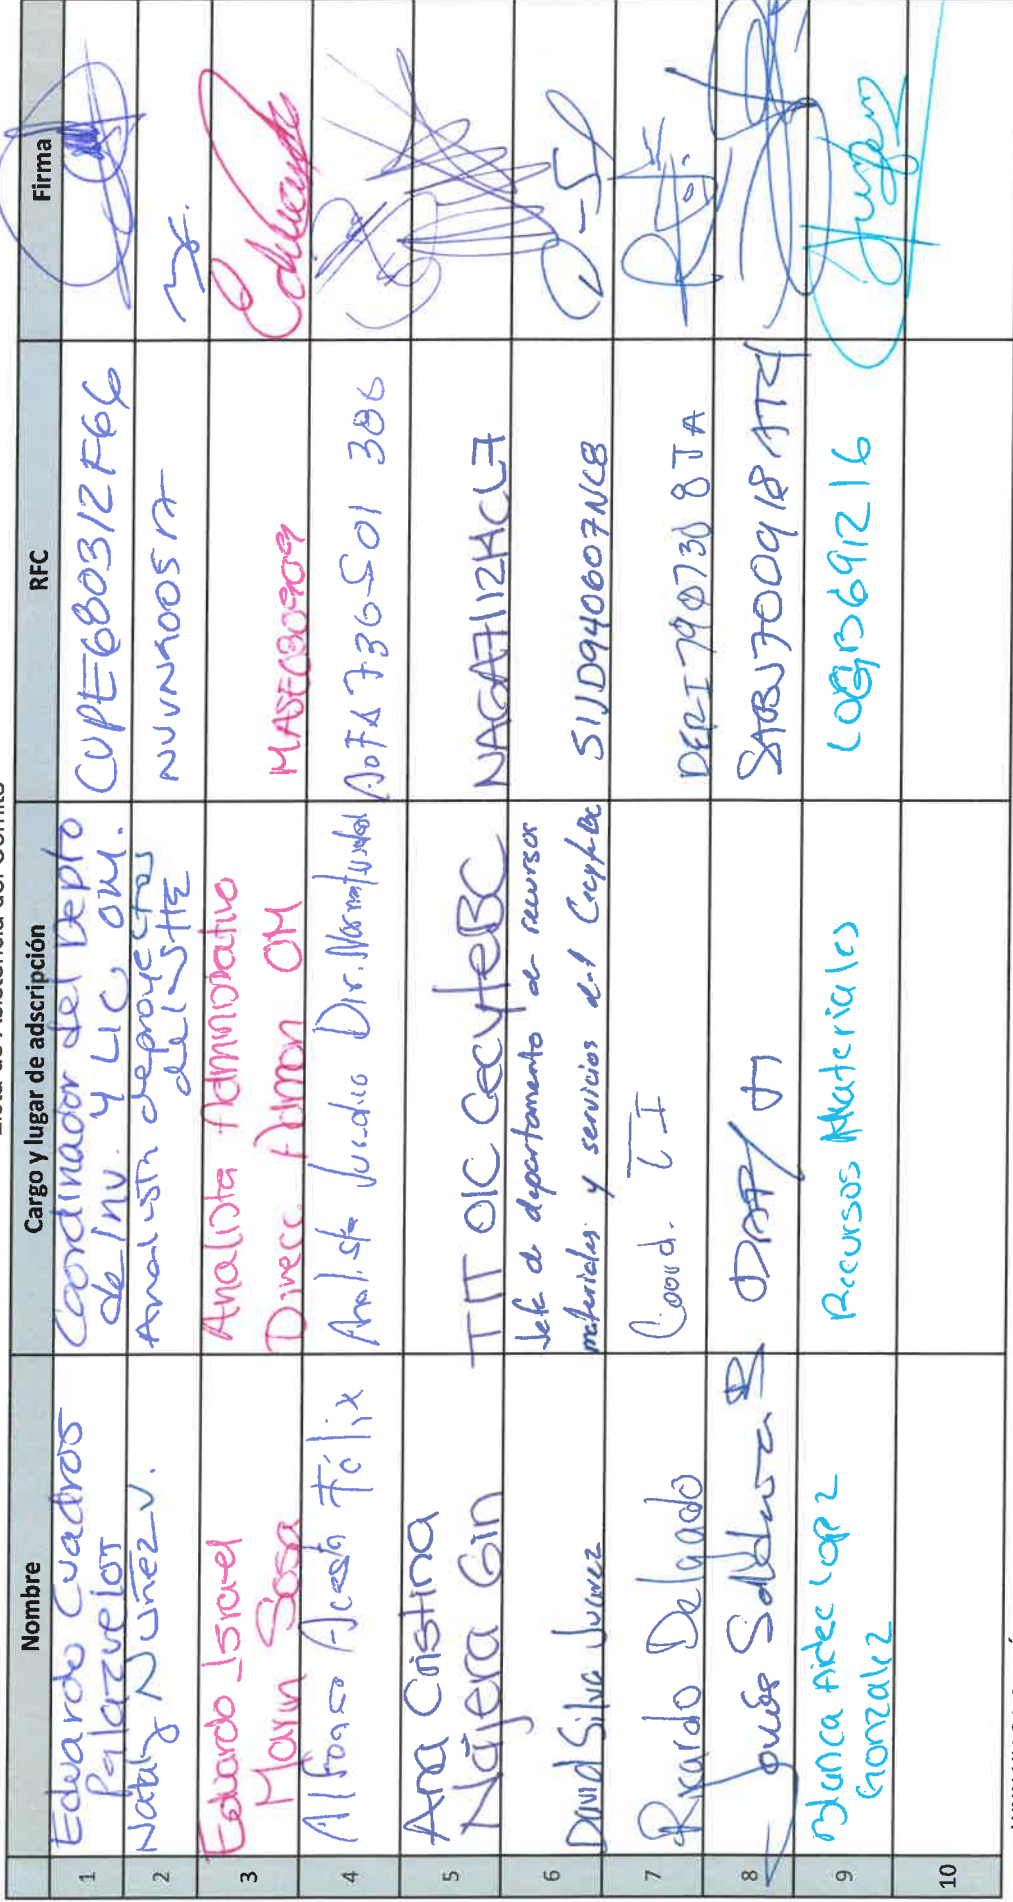 Nombre
Cargo y lugar de adscripción
RFC
Firma
1
Eduardo Cuadros
Palazuelos
Coordinador del Depto
de Inv. y LIC, OM.
CUPE680312F66
2
Nataly Nuñez V.
Analista de proyectos
del
NUVN9005
3
Eduardo Israel
Marin Sosa
Analista Administrativo
Direcc Admon OM
MASE080909
4
Alfonso Acosta Félix
Analista Jurídico Dir. Normatividad
5
Ana Cristina
Nájera Gin
TIT OIC CecyteBC
NAGA7112HCL7
6
David Silva Juarez
Jefe d departamento de recursos
materiales y servicios del CecyteBC
SIJD940607NC8
7
Ricardo Delgado
Coord. TI
DERI790730 8JA
8
Saldivar B
9
Blanca Aidee Lopz
Gonzalez
Recursos Materiales
LOGB691216
10